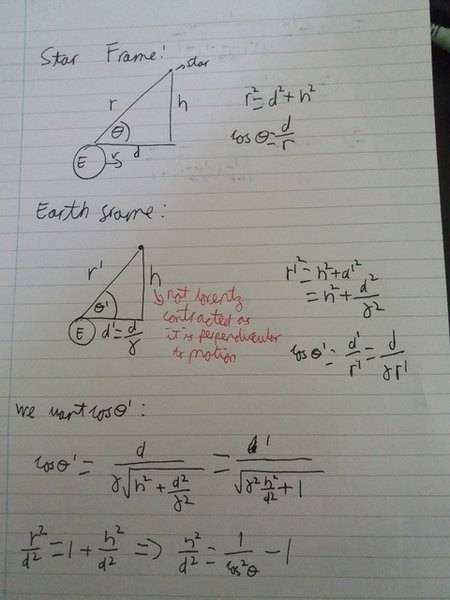 Star Frame:
→ star
r
h
θ
E
v
d
r² = d² + h²
cos θ = d/r
Earth frame:
r'
h
θ'
E
d' = d/γ
not lorentz
contracted as
it is perpendicular
to motion
r'² = h² + d'²
= h² + d²/γ²
cos θ' = d'/r' = d/γr'
we want cos θ':
cos θ' = d/γ√(h² + d²/γ²) = 1/√(γ² h²/d² + 1)
r²/d² = 1 + h²/d² => h²/d² = 1/cos²θ - 1